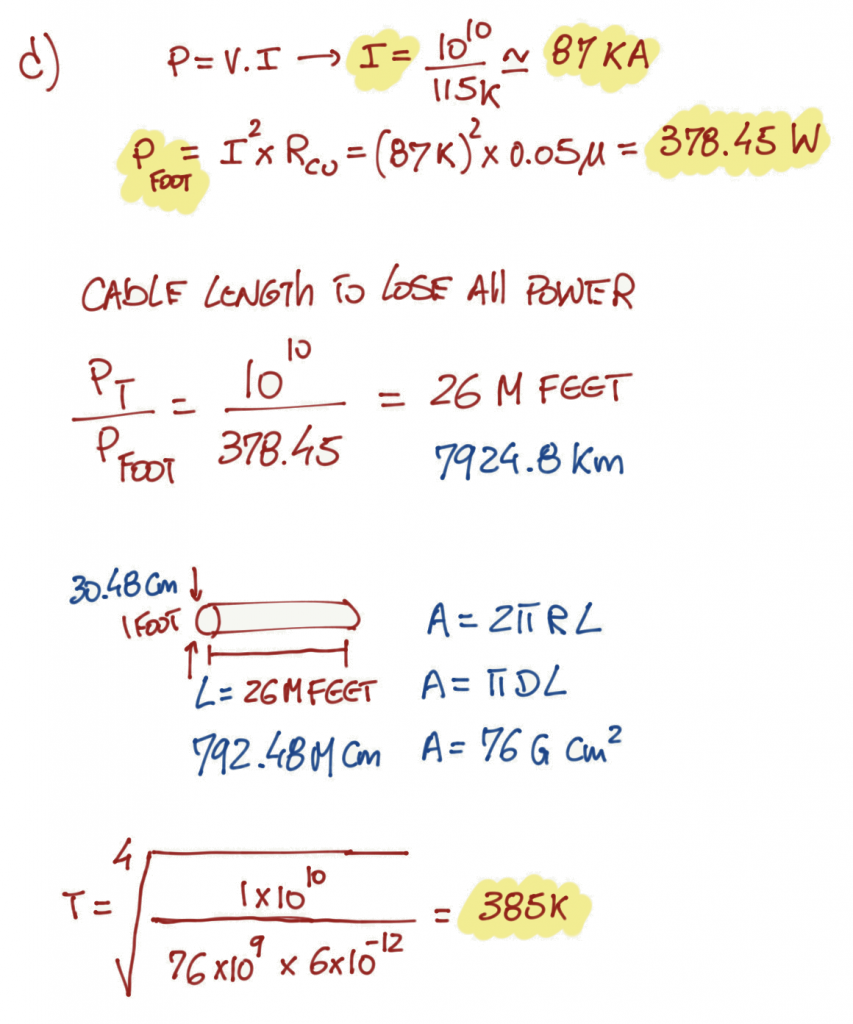 d) P = V.I → I = 10^10 / 115K ≃ 87 KA
P FOOT = I² x R CU = (87K)² x 0.05µ = 378.45 W
CABLE LENGTH TO LOSE All POWER
P T / P FOOT = 10^10 / 378.45 = 26 M FEET
7924.8 Km
30.48 Cm
1 FOOT
A = 2πRL
L = 26 M FEET
A = πDL
792.48 M Cm
A = 76 G Cm²
T = ⁴√(1x10^10 / 76x10^9 x 6x10^-12) = 385K